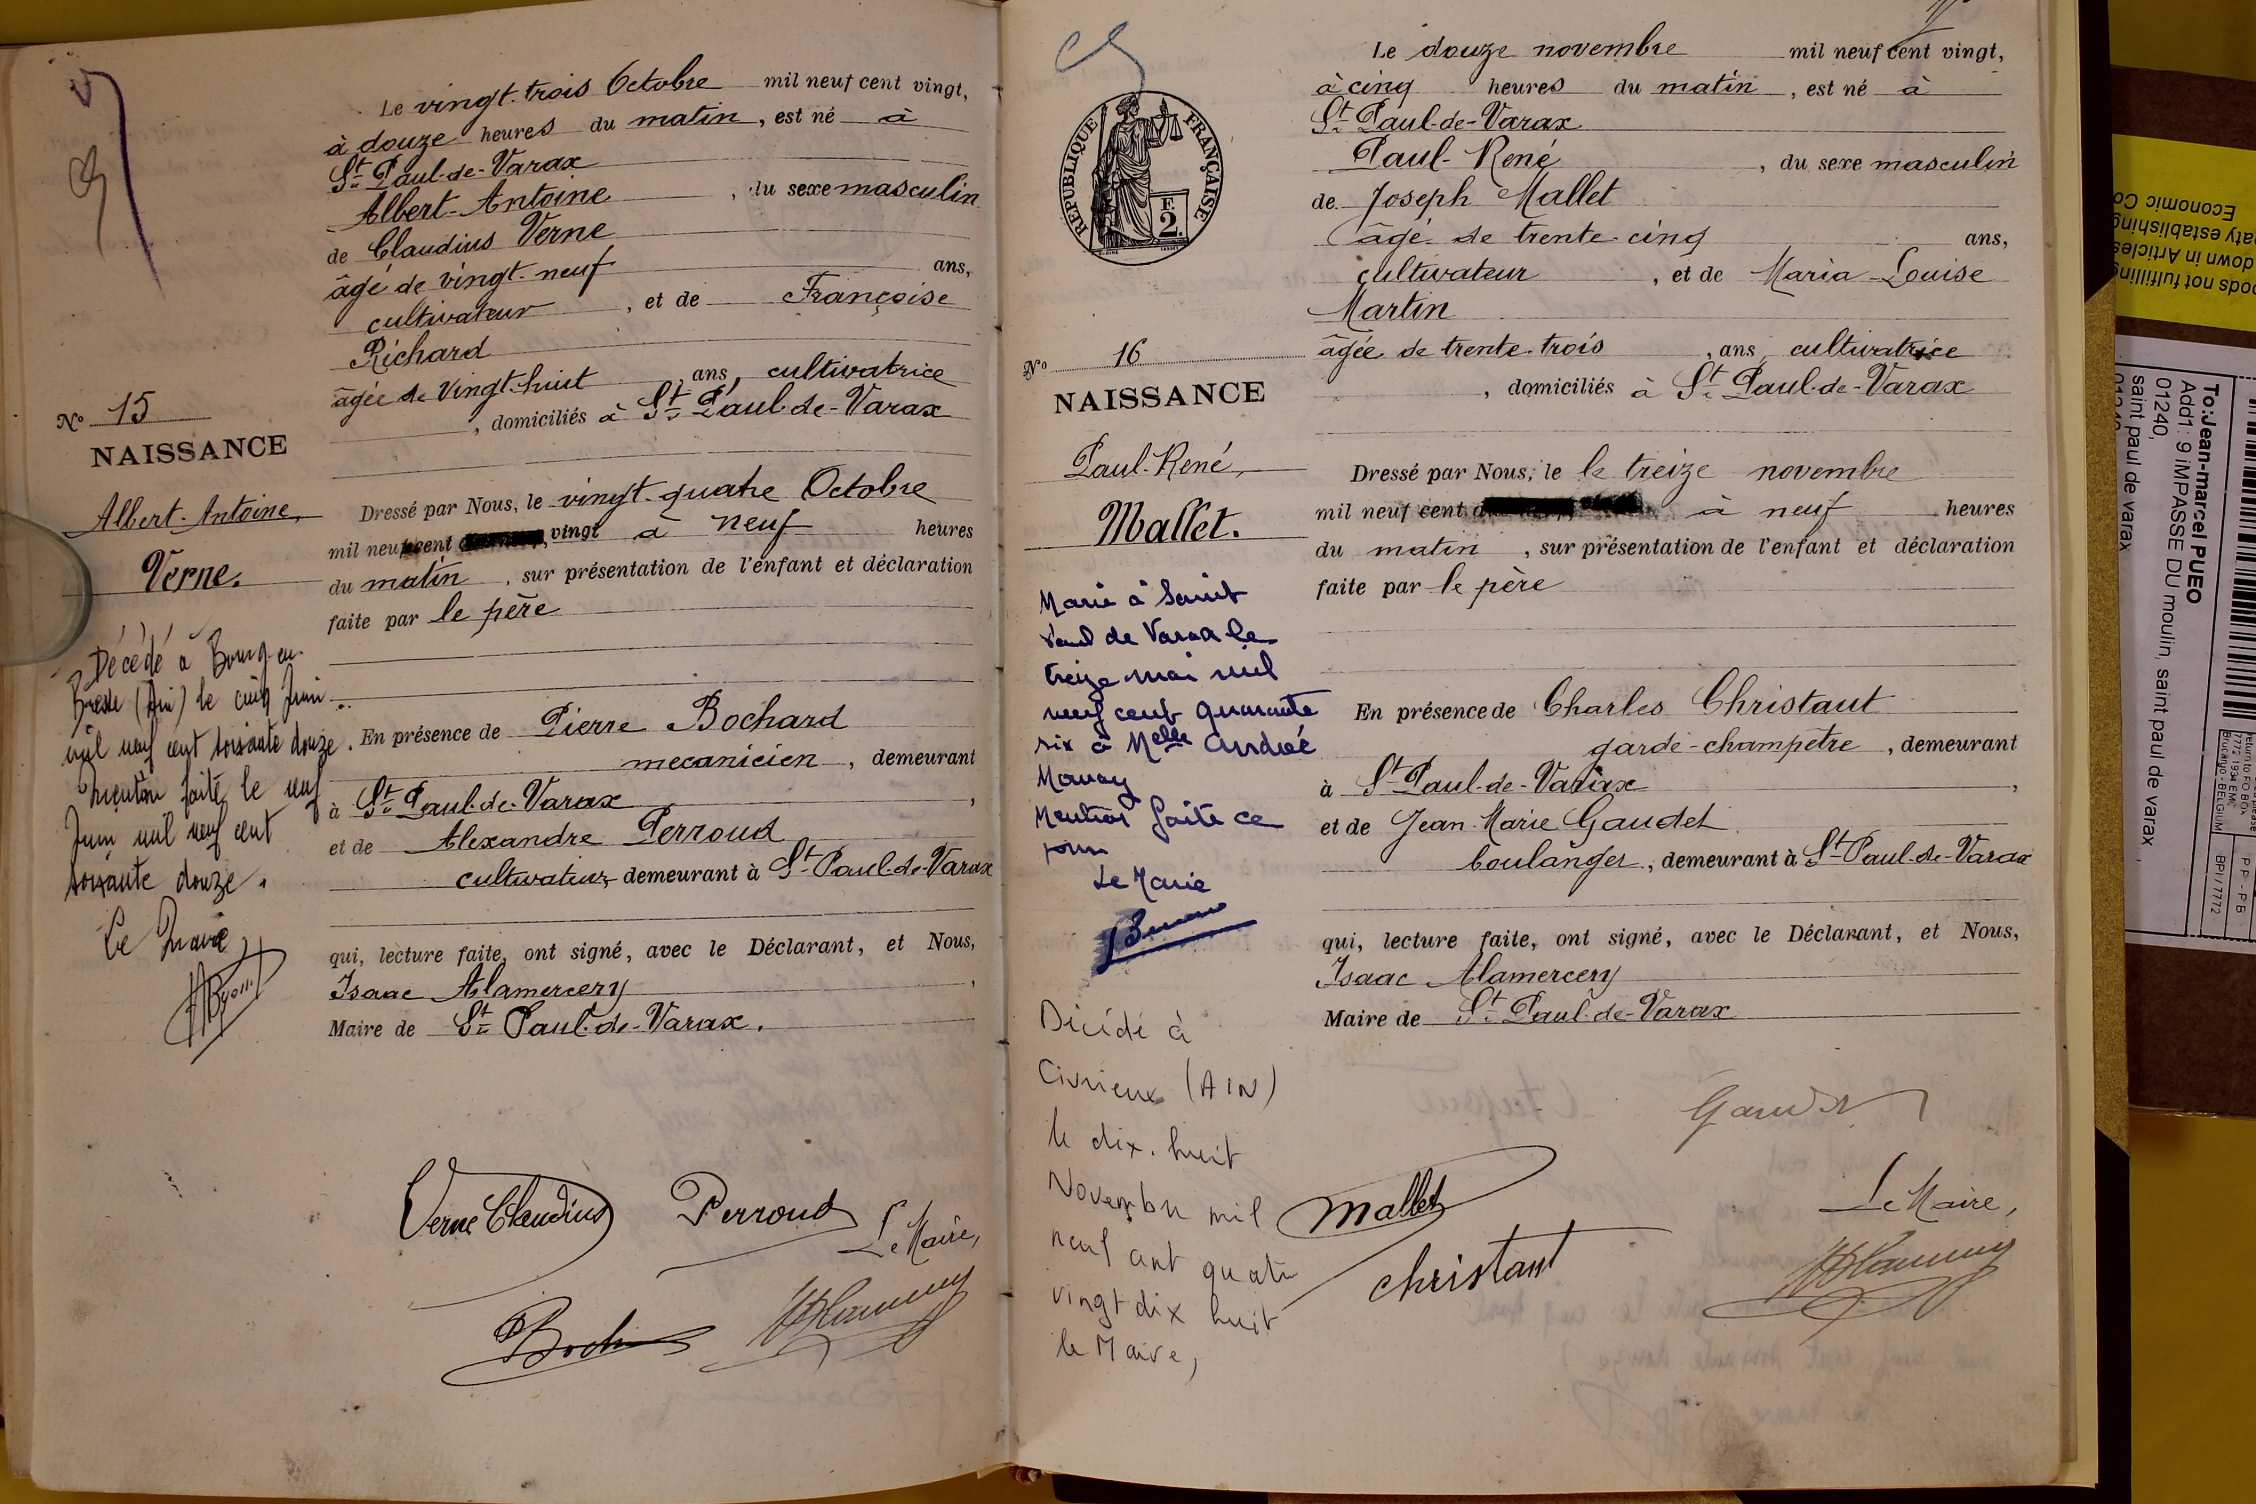 Le vingt-trois Octobre mil neuf cent vingt,
à douze heures du matin, est né à
St Paul-de-Varax
Albert-Antoine, du sexe masculin
de Claudius Verne
âgé de vingt-neuf ans,
cultivateur, et de Françoise
Richard
âgée de vingt-huit ans, cultivatrice
, domiciliés à St Paul-de-Varax
No 15
NAISSANCE
Albert-Antoine,
Verne.
Dressé par Nous, le vingt-quatre Octobre
mil neuf cent vingt à neuf heures
du matin, sur présentation de l'enfant et déclaration
faite par le père
Décédé à Bourg-en-
Bresse (Ain) le cinq Juin
mil neuf cent soixante douze.
Mention faite le neuf
Juin mil neuf cent
soixante douze.
Le Maire
En présence de Pierre Bochard
mecanicien, demeurant
à St Paul-de-Varax,
et de Alexandre Perroud
cultivateur, demeurant à St Paul-de-Varax
qui, lecture faite, ont signé, avec le Déclarant, et Nous,
Isaac Alamercery,
Maire de St Paul-de-Varax.
Verne Claudius
Perroud
Le Maire,
Le douze novembre mil neuf cent vingt,
à cinq heures du matin, est né à
St Paul-de-Varax
Paul-René, du sexe masculin
de Joseph Mallet
âgé de trente-cinq ans,
cultivateur, et de Maria-Louise
Martin
âgée de trente-trois, ans, cultivatrice
, domiciliés à St Paul-de-Varax
RÉPUBLIQUE FRANÇAISE
F.
2.
No 16
NAISSANCE
Paul-René,
Mallet.
Dressé par Nous, le le treize novembre
mil neuf cent à neuf heures
du matin, sur présentation de l'enfant et déclaration
faite par le père
Marié à Saint
Paul de Varax le
treize mai mil
neuf cent quarante
six à Melle Andrée
Mention faite ce
jour
Le Maire
Décédé à
Civrieux (AIN)
le dix-huit
Novembre mil
neuf cent quatre
vingt dix huit
le Maire,
En présence de Charles Christaut
garde-champêtre, demeurant
à St Paul-de-Varax,
et de Jean-Marie Gaudet
boulanger, demeurant à St Paul-de-Varax
qui, lecture faite, ont signé, avec le Déclarant, et Nous,
Isaac Alamercery
Maire de St Paul-de-Varax
Mallet
Christaut
Le Maire,
To:Jean-marcel PUEO
Add1: 9 IMPASSE DU moulin, saint paul de varax ,
01240,
saint paul de varax
Bruc​argo - BELGIUM
BPI / 7772
PP - PB